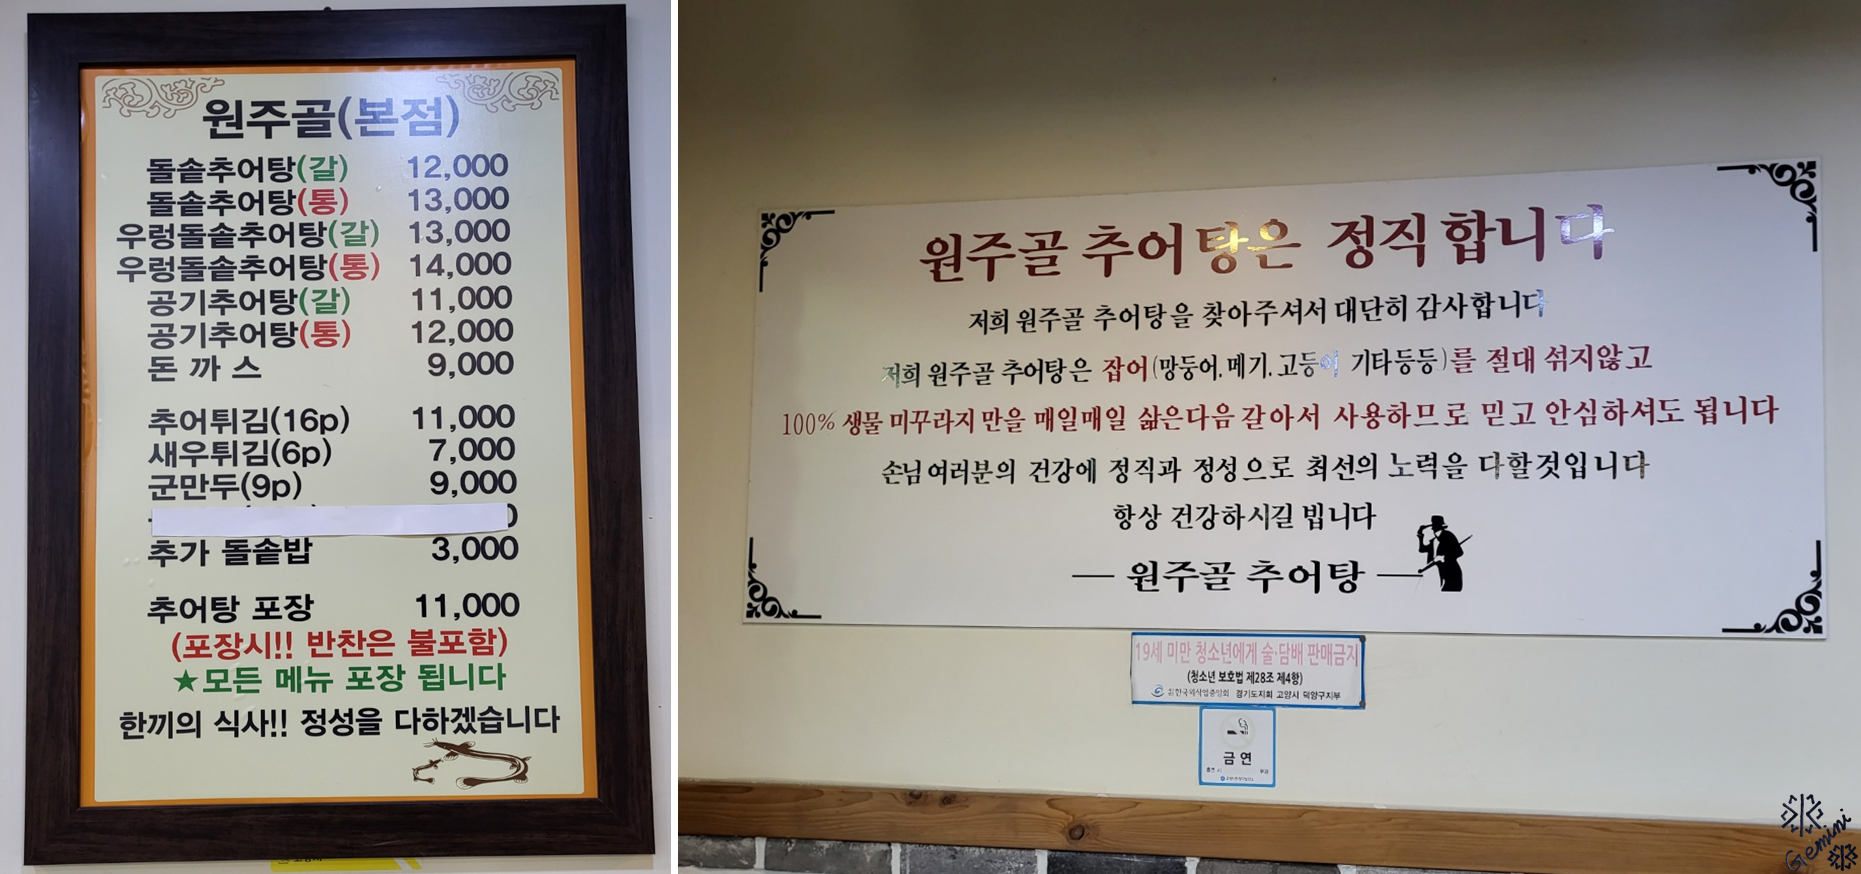 원주골(본점)
돌솥추어탕(갈) 12,000
돌솥추어탕(통) 13,000
우렁돌솥추어탕(갈) 13,000
우렁돌솥추어탕(통) 14,000
공기추어탕(갈) 11,000
공기추어탕(통) 12,000
돈 까 스 9,000
추어튀김(16p) 11,000
새우튀김(6p) 7,000
군만두(9p) 9,000
추가 돌솥밥 3,000
추어탕 포장 11,000
(포장시!! 반찬은 불포함)
★모든 메뉴 포장 됩니다
한끼의 식사!! 정성을 다하겠습니다
원주골 추어탕은 정직합니다
저희 원주골 추어탕을 찾아주셔서 대단히 감사합니다
저희 원주골 추어탕은 잡어(망둥어.메기.고등어 기타등등)를 절대 섞지않고
100% 생물 미꾸라지만을 매일매일 삶은다음 갈아서 사용하므로 믿고 안심하셔도 됩니다
손님여러분의 건강에 정직과 정성으로 최선의 노력을 다할것입니다
항상 건강하시길 빕니다
— 원주골 추어탕 —
19세 미만 청소년에게 술·담배 판매금지
(청소년 보호법 제28조 제4항)
경기도지회 고양시 덕양구지부
금연
Gemini